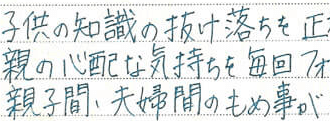 子供の知識の抜け落ちを正
親の心配な気持ちを毎回フォ
親子間、夫婦間のもめ事が